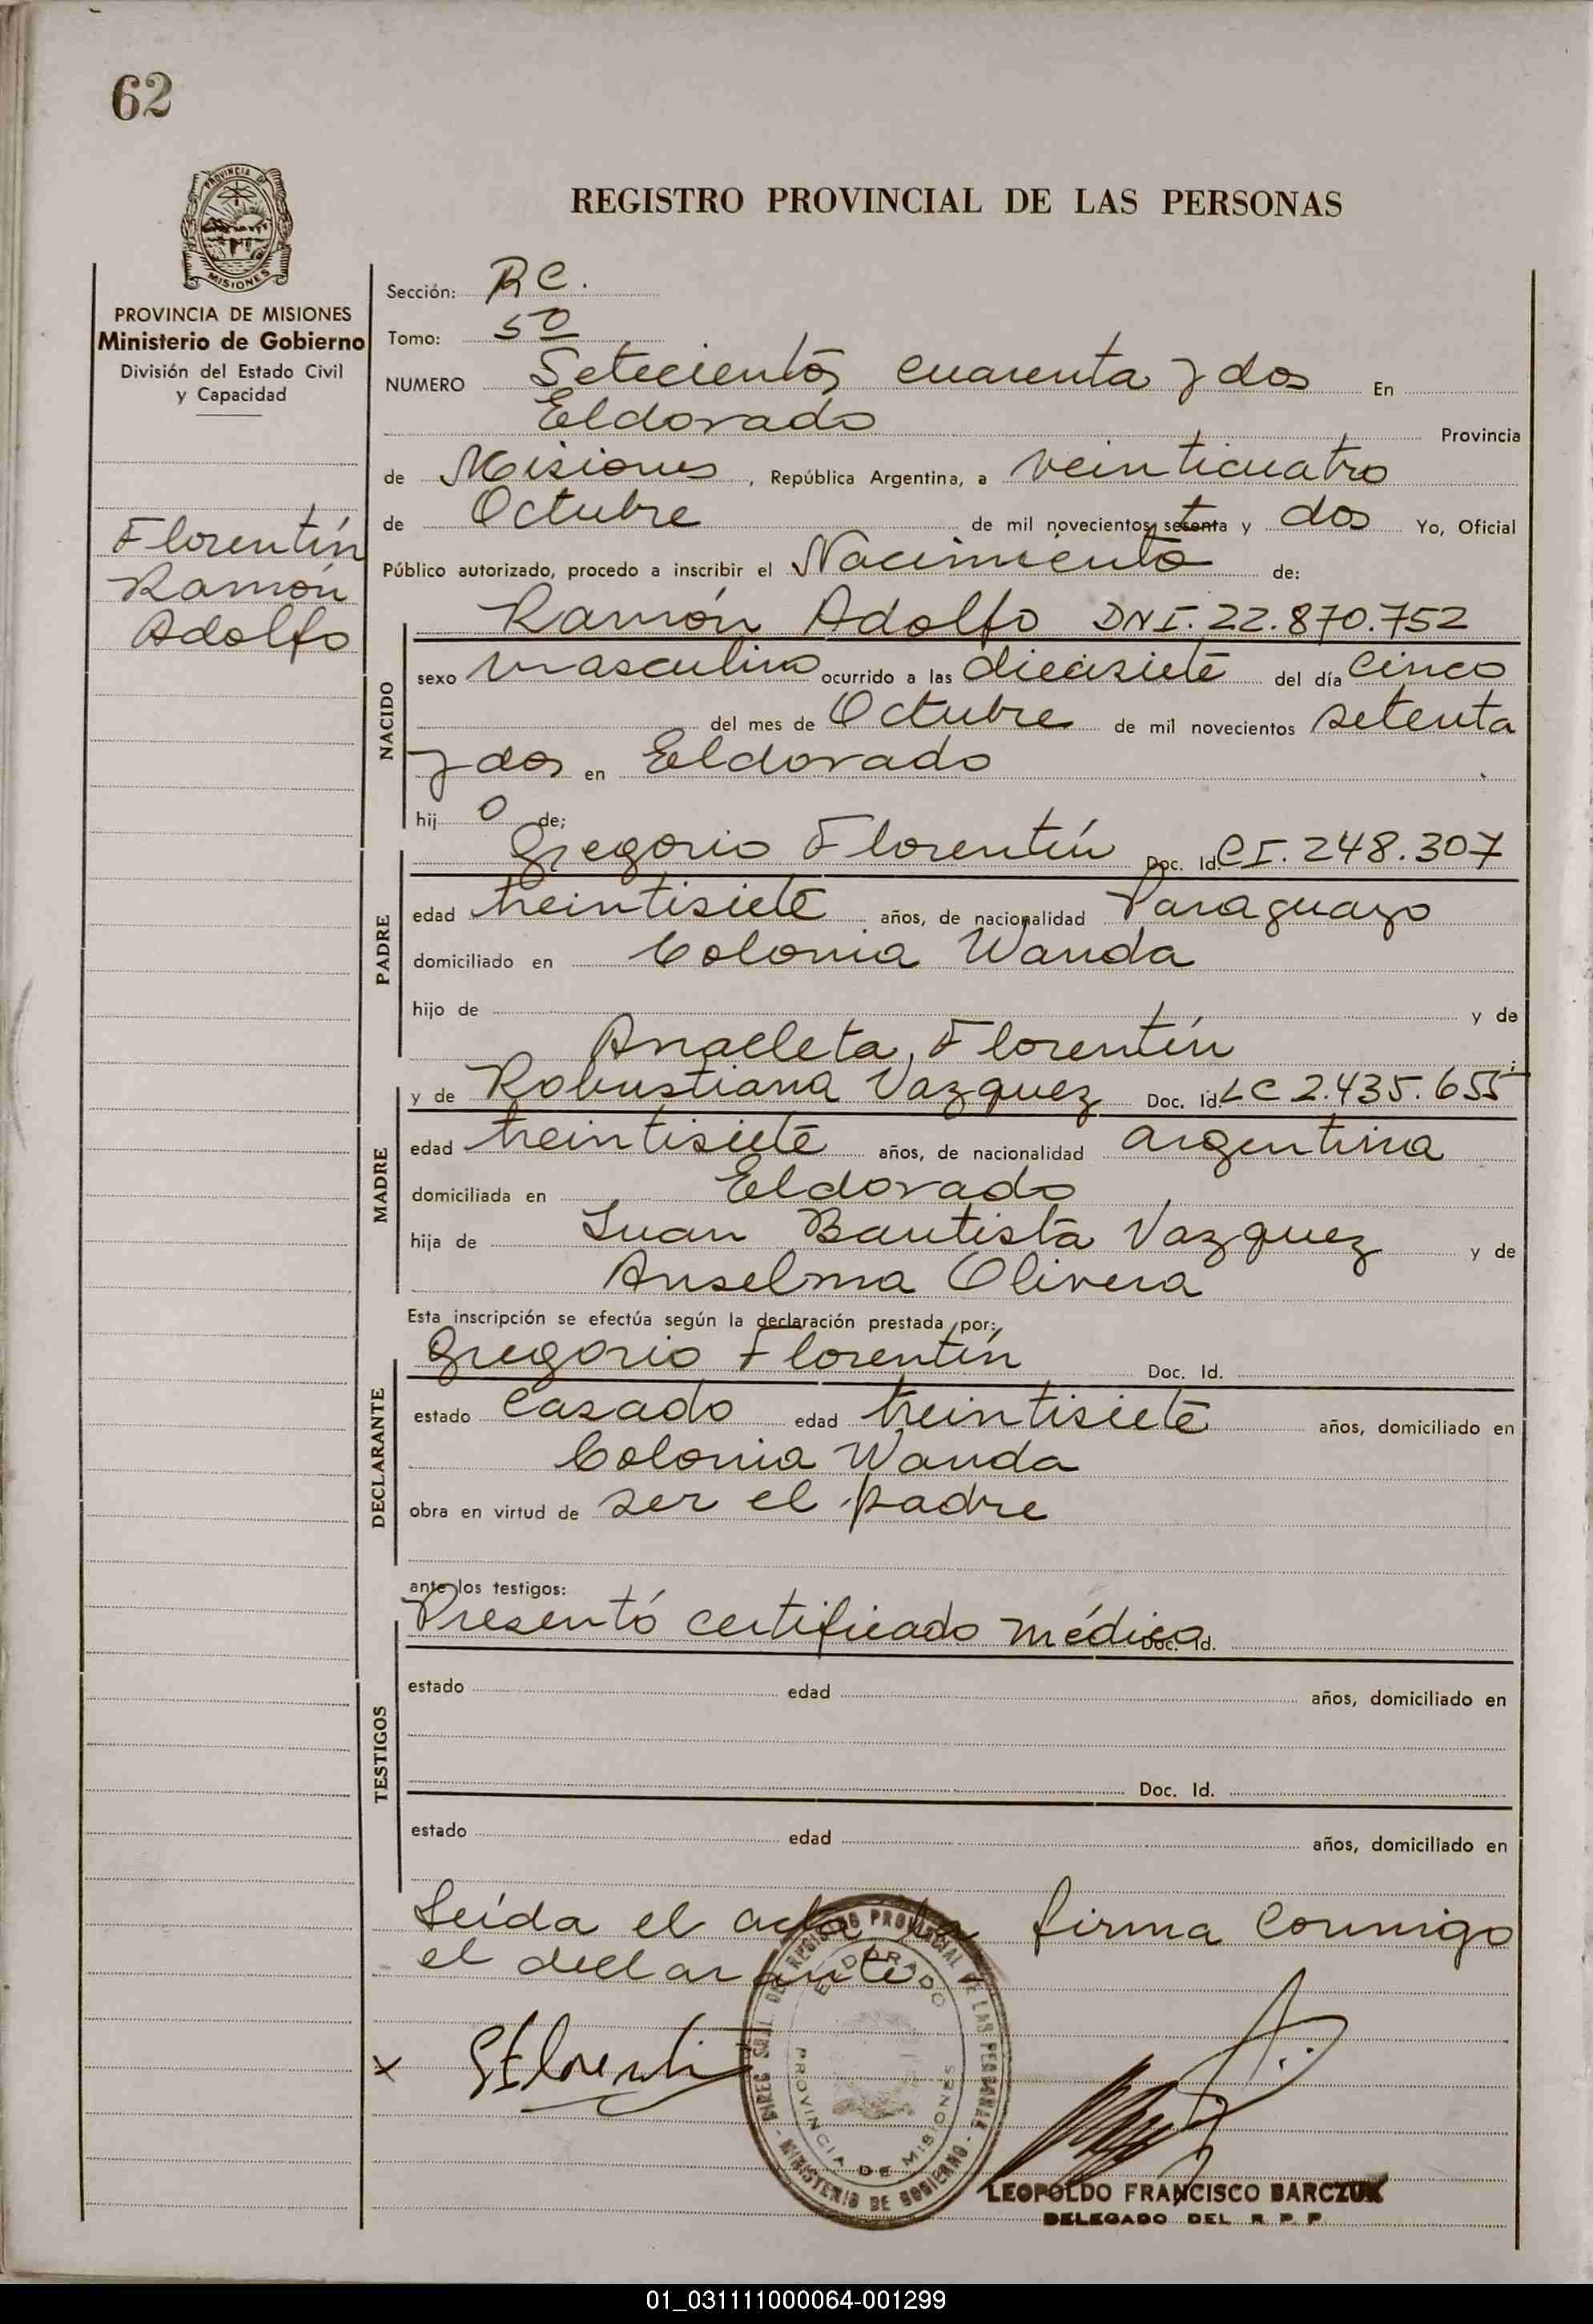 62
PROVINCIA DE MISIONES
REGISTRO PROVINCIAL DE LAS PERSONAS
PROVINCIA DE MISIONES
Ministerio de Gobierno
División del Estado Civil
y Capacidad
Florentín
Ramón
Adolfo
Sección: RC.
Tomo: 5º
NUMERO Setecientos cuarenta y dos En
Eldorado Provincia
de Misiones, República Argentina, a veinticuatro
de Octubre de mil novecientos setenta y dos Yo, Oficial
Público autorizado, procedo a inscribir el Nacimiento de:
NACIDO
Ramón Adolfo DNI. 22.870.752
sexo masculino ocurrido a las diecisiete del día cinco
del mes de Octubre de mil novecientos setenta
y dos en Eldorado
hij o de;
PADRE
Gregorio Florentín Doc. Id. CI. 248.307
edad treintisiete años, de nacionalidad Paraguayo
domiciliado en Colonia Wanda
hijo de y de
Anacleta Florentín
MADRE
y de Robustiana Vazquez Doc. Id. LC 2.435.655
edad treintisiete años, de nacionalidad argentina
domiciliada en Eldorado
hija de Juan Bautista Vazquez y de
Anselma Olivera
Esta inscripción se efectúa según la declaración prestada por:
DECLARANTE
Gregorio Florentín Doc. Id.
estado casado edad treintisiete años, domiciliado en
Colonia Wanda
obra en virtud de ser el padre
ante los testigos:
TESTIGOS
Presentó certificado médico Doc. Id.
estado edad años, domiciliado en
Doc. Id.
estado edad años, domiciliado en
Leída el acta la firma conmigo
el declarante
x GFlorentín
DIREC. GRAL. DEL REGISTRO PROVINCIAL DE LAS PERSONAS
ELDORADO
PROVINCIA DE MISIONES
- MINISTERIO DE GOBIERNO -
LEOPOLDO FRANCISCO BARCZUK
DELEGADO DEL R. P. P.
01_031111000064-001299